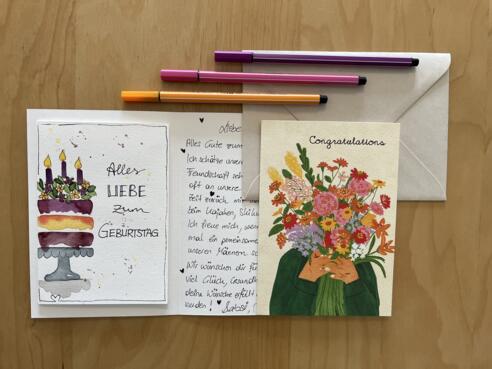 Alles
LIEBE
zum
GEBURTSTAG
Liebe
Alles Gute zum
Ich schätze unsere
Freundschaft seh
oft an unsere
Zeit zurück, mit
beim
Ich freue mich, wenn
mal ein gemeinsame
unseren Männern
Wir wünschen dir für
viel Glück, Gesundhe
deine Wünsche erfüll
werden!
Congratulations